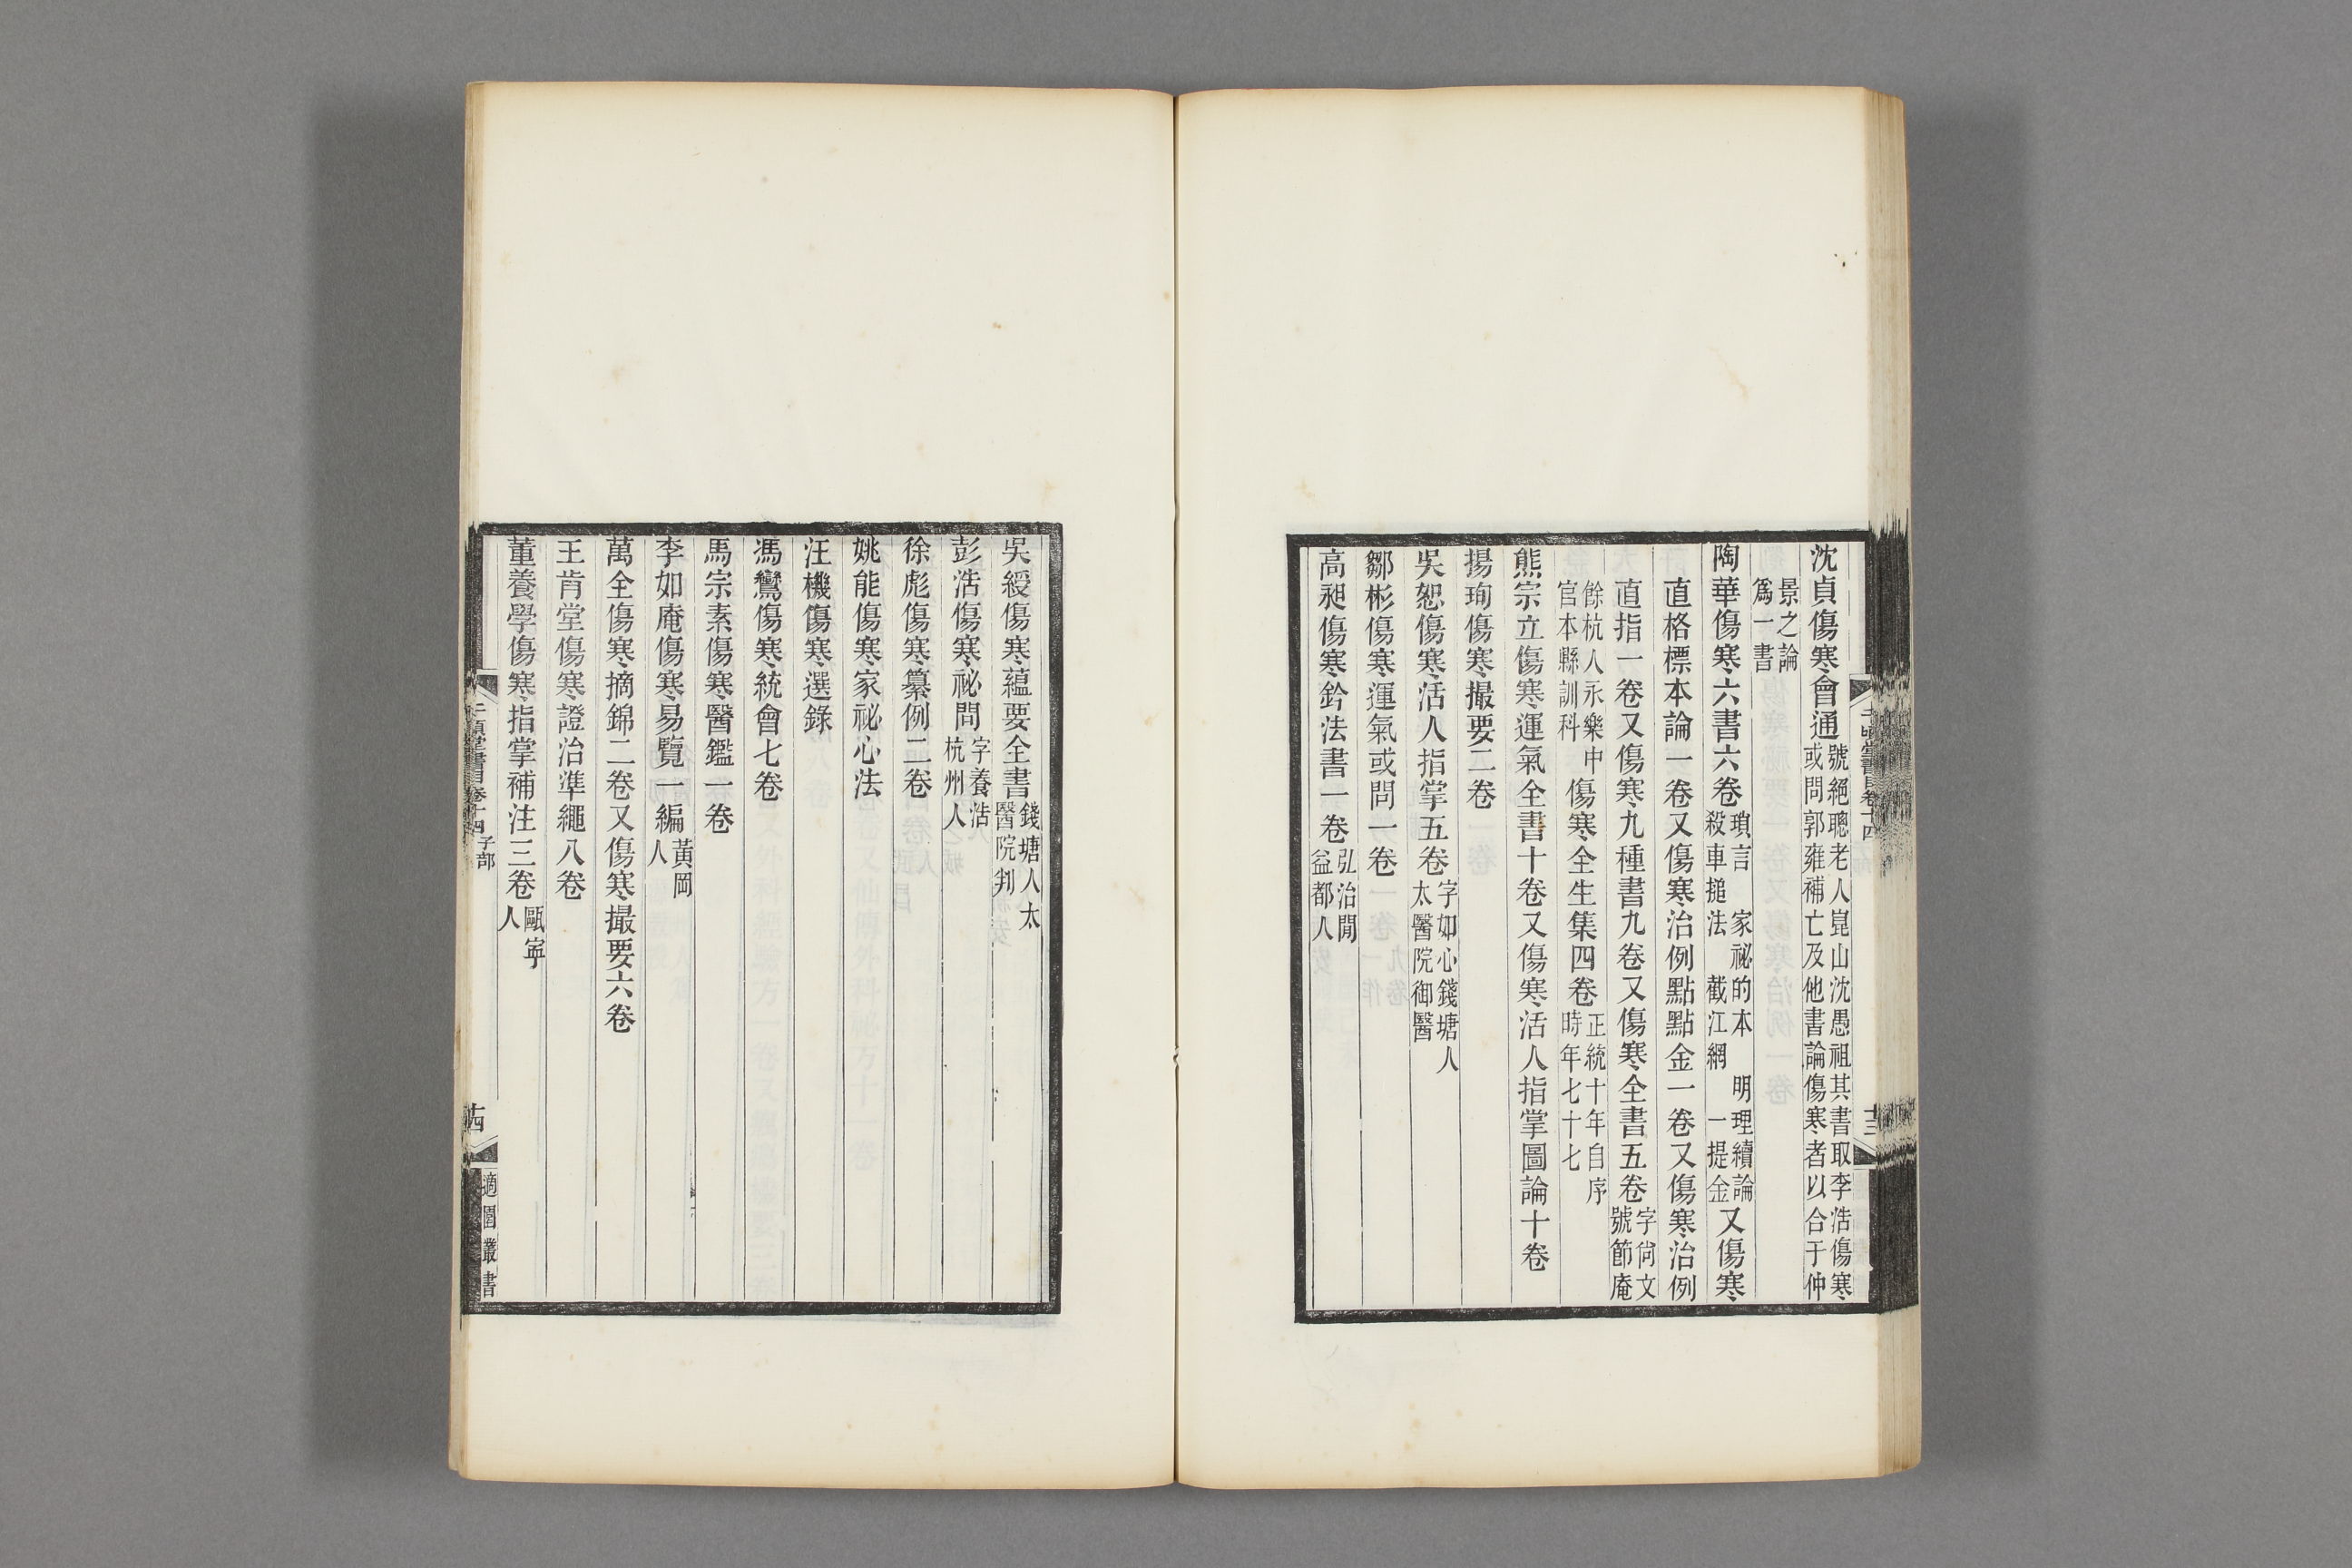 沈貞傷寒會通號絕聰老人崑山沈愚祖其書取李浩傷寒或問郭雍補亡及他書論傷寒者以合于仲
景之論爲一書
陶華傷寒六書六卷瑣言 家祕的本 明理續論殺車搥法 截江網 一提金又傷寒
直格標本論一卷又傷寒治例點點金一卷又傷寒治例
直指一卷又傷寒九種書九卷又傷寒全書五卷字尚文號節庵
餘杭人永樂中官本縣訓科傷寒全生集四卷正統十年自序時年七十七
熊宗立傷寒運氣全書十卷又傷寒活人指掌圖論十卷
揚珣傷寒撮要二卷
吳恕傷寒活人指掌五卷字如心錢塘人太醫院御醫
鄒彬傷寒運氣或問一卷
高昶傷寒鈐法書一卷弘治閒益都人
十三
吳綬傷寒蘊要全書錢塘人太醫院判
彭浩傷寒祕問字養浩杭州人
徐彪傷寒纂例二卷
姚能傷寒家祕心法
汪機傷寒選錄
馮鸞傷寒統會七卷
馬宗素傷寒醫鑑一卷
李如庵傷寒易覽一編黃岡人
萬全傷寒摘錦二卷又傷寒撮要六卷
王肯堂傷寒證治準繩八卷
董養學傷寒指掌補注三卷甌寧人
千頃堂書目卷十四 子部 十四 適園叢書